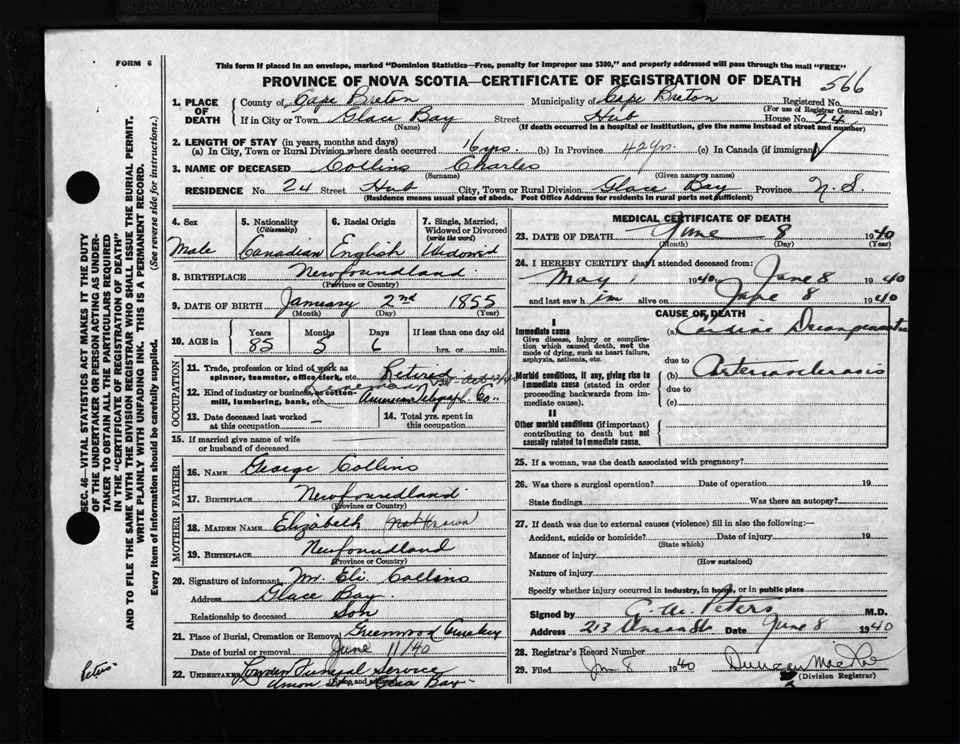 FORM 6
This form if placed in an envelope, marked "Dominion Statistics—Free, penalty for improper use $300," and properly addressed will pass through the mail "FREE"
PROVINCE OF NOVA SCOTIA—CERTIFICATE OF REGISTRATION OF DEATH
566
1. PLACE OF DEATH
County of Cape Breton Municipality of Cape Breton Registered No.
(For use of Registrar General only)
If in City or Town Glace Bay Street Hub House No. 24
(Name) (If death occurred in a hospital or institution, give the name instead of street and number)
2. LENGTH OF STAY (in years, months and days)
(a) In City, Town or Rural Division where death occurred 16 yrs. (b) In Province 42 yrs. (c) In Canada (if immigrant)
3. NAME OF DECEASED Collins Charles
(Surname) (Given name or names)
RESIDENCE No. 24 Street Hub City, Town or Rural Division Glace Bay Province N. S.
(Residence means usual place of abode. Post Office Address for residents in rural parts not sufficient)
4. Sex
Male
5. Nationality
(Citizenship)
Canadian
6. Racial Origin
English
7. Single, Married, Widowed or Divorced
(write the word)
Widowed
8. BIRTHPLACE Newfoundland
(Province or Country)
9. DATE OF BIRTH January 2nd 1855
(Month) (Day) (Year)
10. AGE in
Years Months Days If less than one day old
85 5 6 hrs. or min.
OCCUPATION
11. Trade, profession or kind of work as spinner, teamster, office clerk, etc. Retired
12. Kind of industry or business, as cotton-mill, lumbering, bank, etc. American Telegraph Co.
13. Date deceased last worked at this occupation —
14. Total yrs. spent in this occupation
15. If married give name of wife or husband of deceased
FATHER
16. NAME George Collins
17. BIRTHPLACE Newfoundland
(Province or Country)
MOTHER
18. MAIDEN NAME Elizabeth (not known)
19. BIRTHPLACE Newfoundland
(Province or Country)
20. Signature of informant Mr. Eli Collins
Address Glace Bay.
Relationship to deceased Son
21. Place of Burial, Cremation or Removal Greenwood Cemetery
Date of burial or removal June 11/40
22. UNDERTAKER Funeral Service
(Name and address)
Union Glace Bay
MEDICAL CERTIFICATE OF DEATH
23. DATE OF DEATH June 8 1940
(Month) (Day) (Year)
24. I HEREBY CERTIFY that I attended deceased from:
May 1 1940 to June 8 1940
and last saw him alive on June 8 1940
CAUSE OF DEATH
I
Immediate cause
Give disease, injury or complication which caused death, not the mode of dying, such as heart failure, asphyxia, asthenia, etc.
(a) Cardiac Decompensation
due to
Morbid conditions, if any, giving rise to immediate cause (stated in order proceeding backwards from immediate cause).
(b) Arteriosclerosis
due to
(c)
II
Other morbid conditions (if important) contributing to death but not causally related to immediate cause.
25. If a woman, was the death associated with pregnancy?
26. Was there a surgical operation? Date of operation 19
State findings Was there an autopsy?
27. If death was due to external causes (violence) fill in also the following:—
Accident, suicide or homicide? Date of injury 19
(State which)
Manner of injury
(How sustained)
Nature of injury
Specify whether injury occurred in industry, in home, or in public place
Signed by C. M. Peters M.D.
Address 213 Date June 8 1940
28. Registrar's Record Number
29. Filed Jun 8 1940
(Division Registrar)
SEC. 46—VITAL STATISTICS ACT MAKES IT THE DUTY
OF THE UNDERTAKER OR PERSON ACTING AS UNDER-
TAKER TO OBTAIN ALL THE PARTICULARS REQUIRED
IN THE "CERTIFICATE OF REGISTRATION OF DEATH"
AND TO FILE THE SAME WITH THE DIVISION REGISTRAR WHO SHALL ISSUE THE BURIAL PERMIT.
WRITE PLAINLY WITH UNFADING INK. THIS IS A PERMANENT RECORD.
Every item of information should be carefully supplied. (See reverse side for instructions.)
Peters